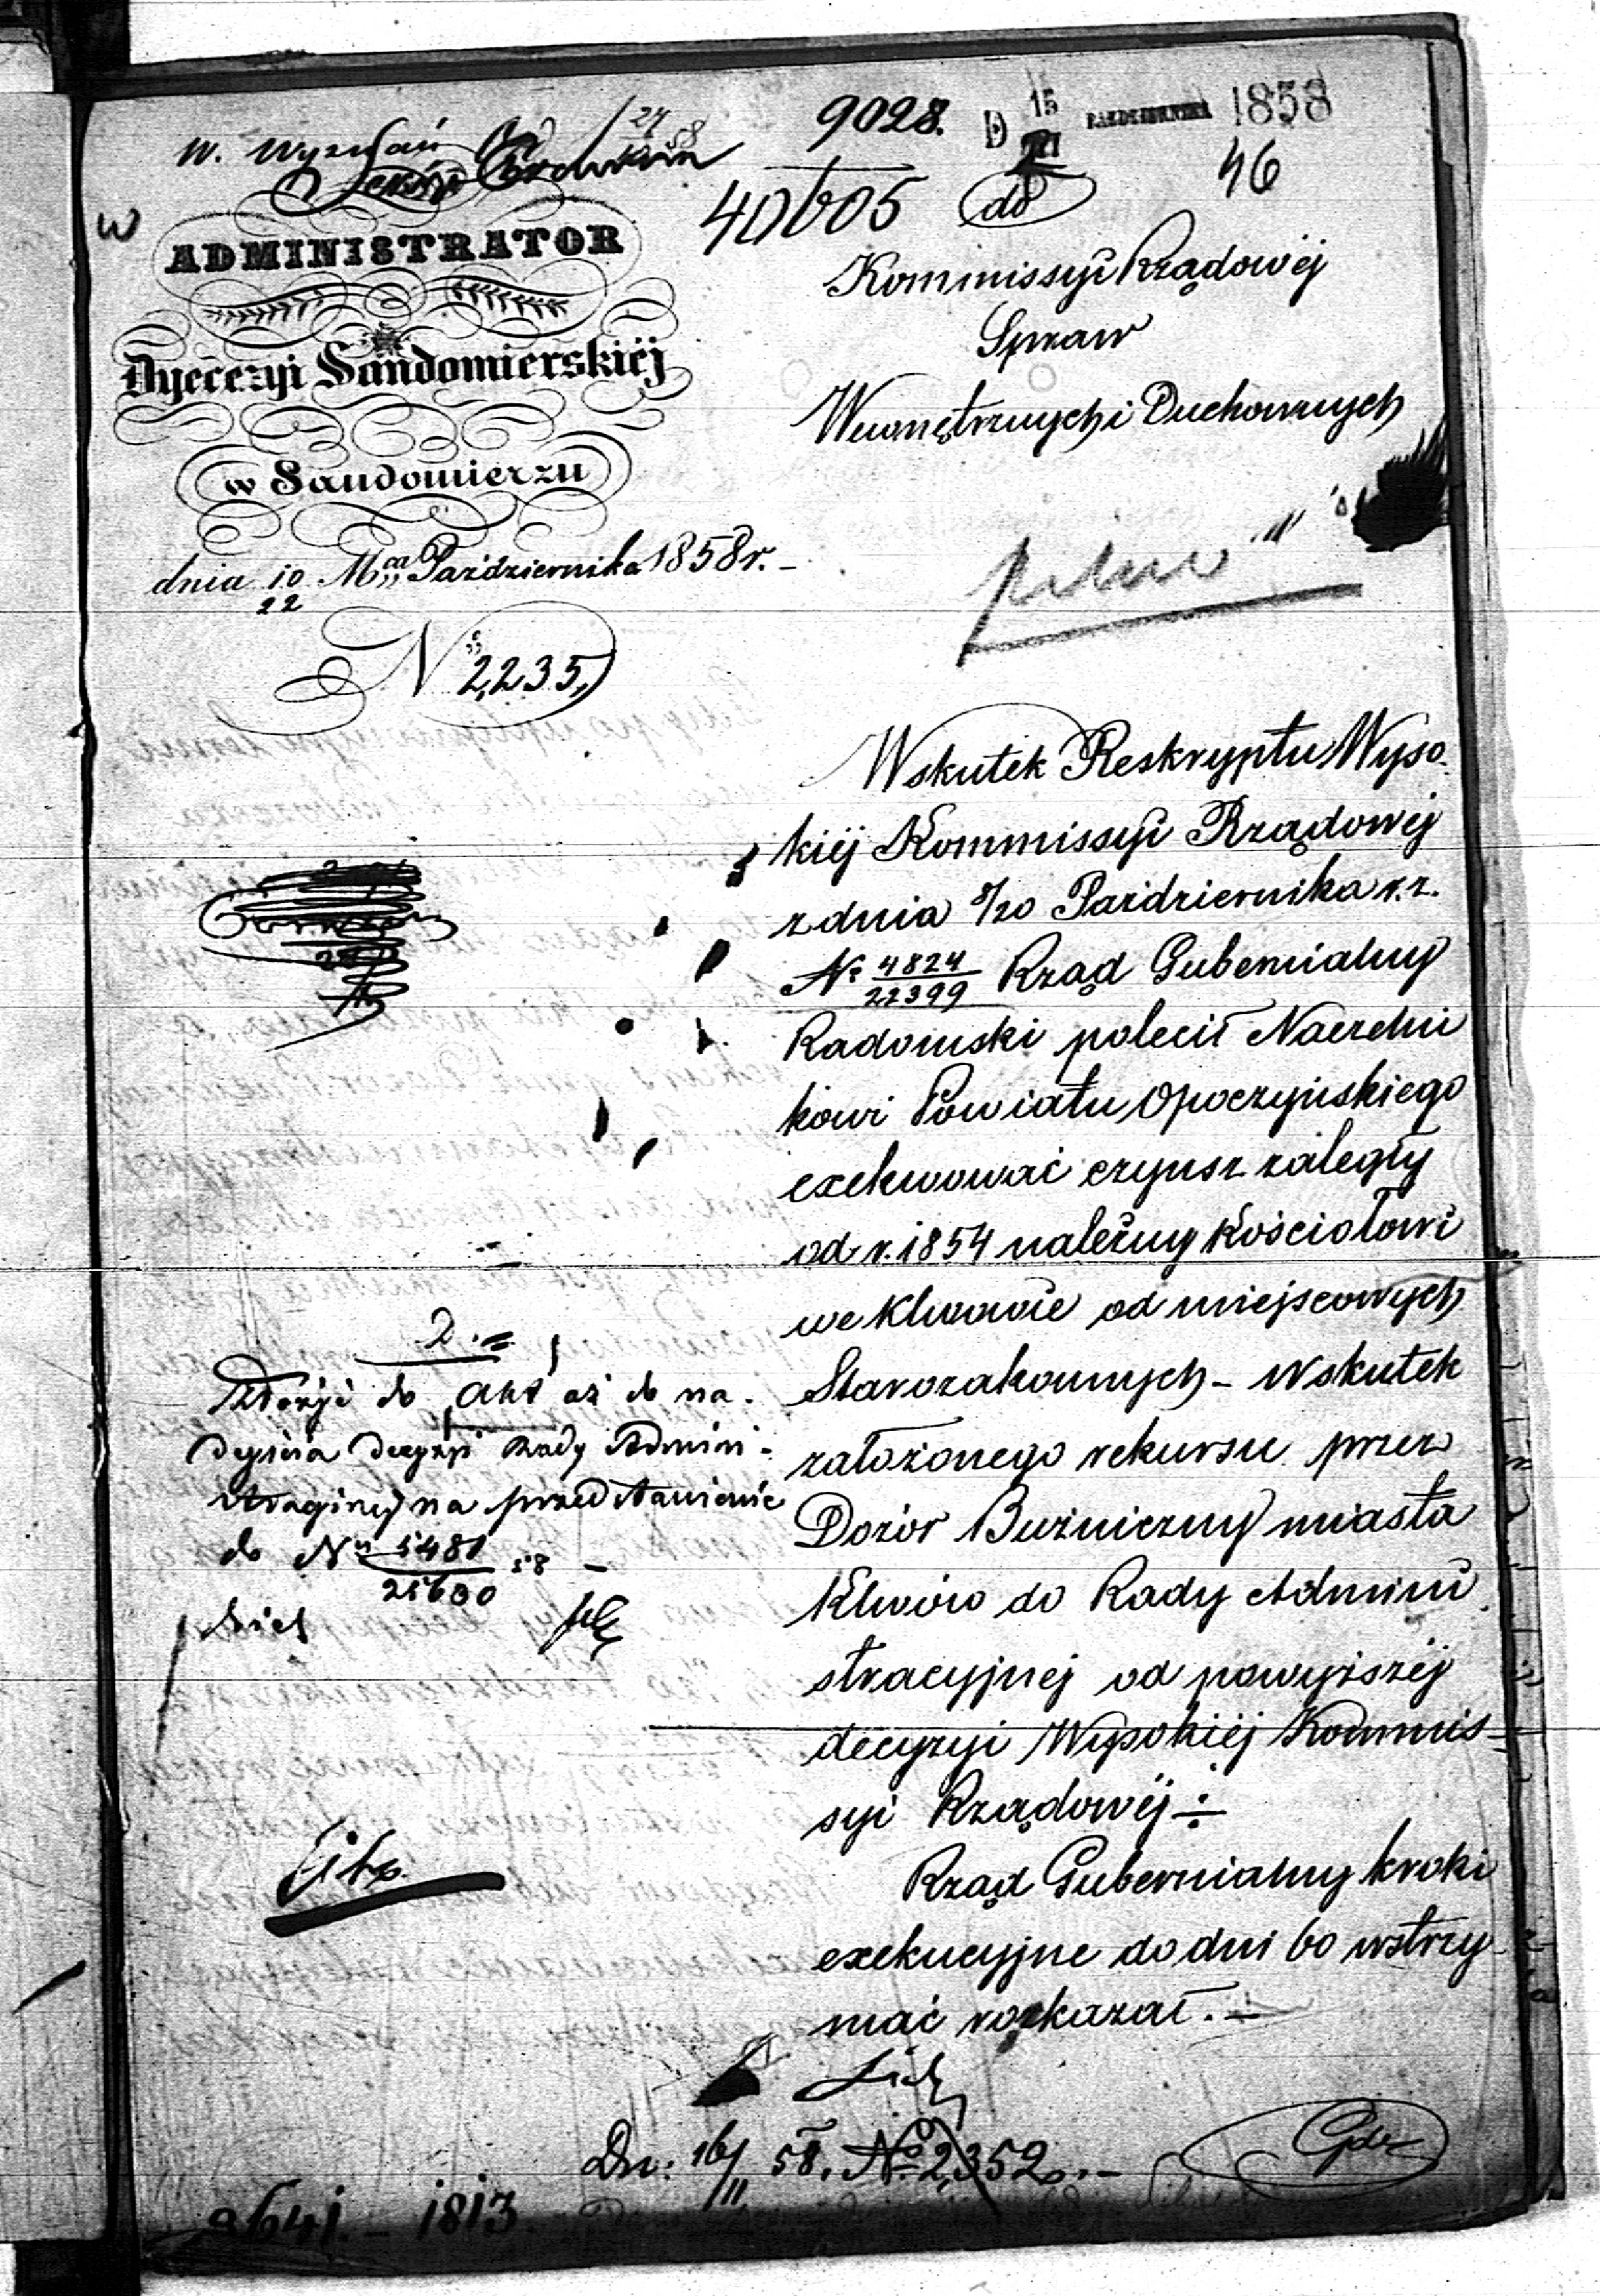 W. Wyznań
9028.
D 15 PAŹDZIERNIKA 1858
40605
46
do
ADMINISTRATOR
Dyecezyi Sandomierskiéj
w Sandomierzu
dnia 10/22 Mca Października 1858 r. –
N 2,235,
Kommissyi Rządowéj
Spraw
Wewnętrznych i Duchownych
pilno
Wskutek Reskryptu Wyso-
kiéj Kommissyi Rządowéj
z dnia 8/20 Października r. z.
No 4824/22399 Rząd Gubernialny
Radomski polecił Naczelni
kowi Powiatu Opoczyńskiego
exekwować czynsz zaległy
od r. 1854 należny Kościołowi
we Klwowie od miejscowych
Starozakonnych – Wskutek
założonego rekursu przez
Dozór Bużniczny miasta
Klwów do Rady Admini
stracyjnej od powyższéj
decyzyi Wysokiéj Kommis-
syi Rządowéj ÷
Rząd Gubernialny kroki
exekucyjne do dni 60 wstrzy
mać rozkazał. –
D.
Złożyć do Akt aż do na-
dejścia decyzyi Rady Admini-
stracyjnej na przedstawienie
do No 5481/25600 58 –
Dn: 16/11 58. No 2,352. –
9641. – 1813.